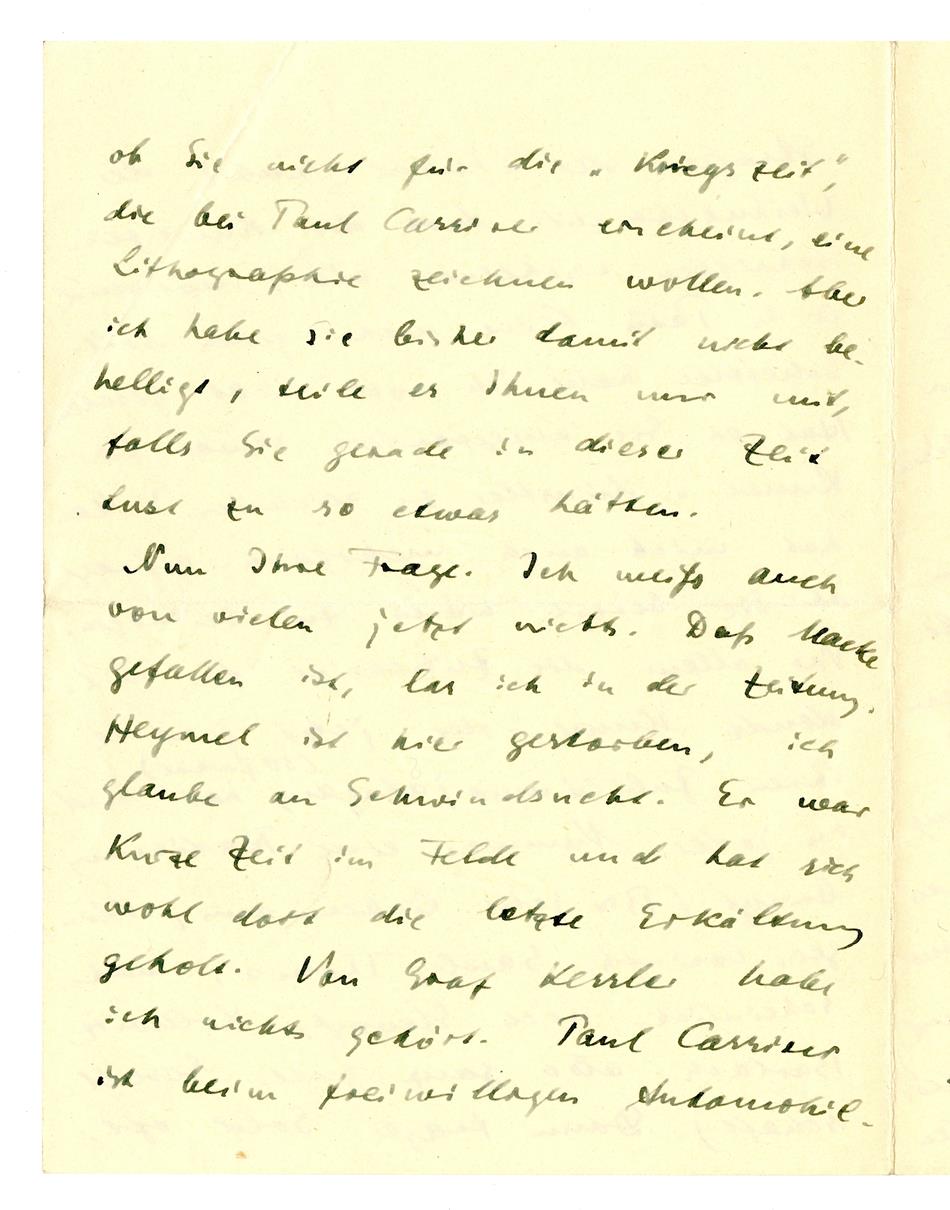 ob Sie nicht für die „Kriegszeit“,
die bei Paul Cassirer erscheint, eine
Lithographie zeichnen wollen. Aber
ich habe Sie bisher damit nicht be-
helligt, teile es Ihnen nur mit,
falls Sie gerade in dieser Zeit
Lust zu so etwas hätten.
Nun Ihre Frage. Ich weiß auch
von vielen jetzt nichts. Daß Macke
gefallen ist, las ich in der Zeitung.
Heymel ist hier gestorben, ich
glaube an Schwindsucht. Er war
kurze Zeit im Felde und hat sich
wohl dort die letzte Erkältung
geholt. Von Graf Kessler habe
ich nichts gehört. Paul Cassirer
ist beim freiwilligen Automobil-